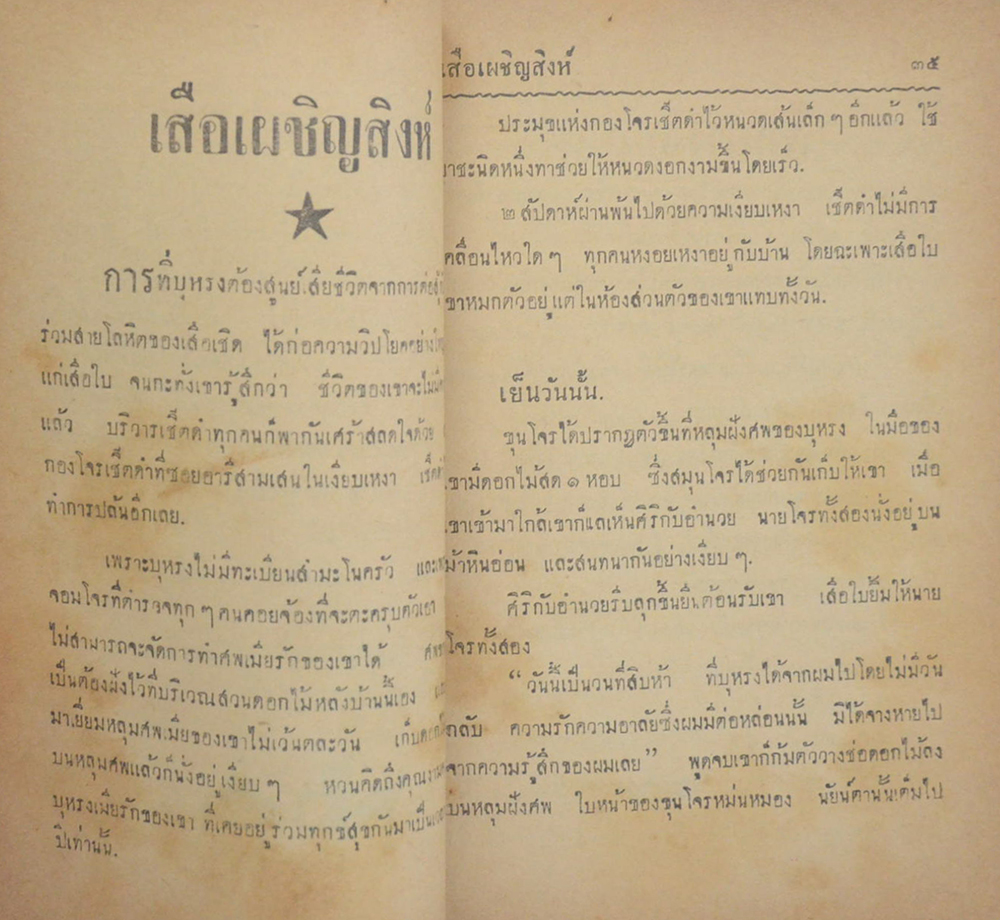 เสือเผชิญสิงห์
การที่บุหรงต้องสูนย์เสียชีวิตจากการต่อสู้
ร่วมสายโลหิตของเสือเชิด ได้ก่อความวิปโยคอย่าง
แก่เสือใบ จนกะทั่งเขารู้สึกว่า ชีวิตของเขาจะไม่
แล้ว บริวารเชิ๊ตดำทุกคนก็พากันเศร้าสลดใจด้วย
กองโจรเชิ๊ตดำที่ซอยอารีสามเสนในเงียบเหงา
ทำการปล้นอีกเลย.
เพราะบุหรงไม่มีทะเบียนสำมะโนครัว
จอมโจรที่ตำรวจทุก ๆ คนคอยจ้องที่จะตะครุบตัวเอา
ไม่สามารถจะจัดการทำศพเมียรักของเขาได้
เป็นต้องฝังไว้ที่บริเวณสวนดอกไม้หลังบ้านนี้เอง
มาเยี่ยมหลุมศพเมียของเขาไม่เว้นตละวัน
บนหลุมศพแล้วก็นั่งอยู่เงียบ ๆ หวนคิดถึงคุณ
บุหรงเมียรักของเขา ที่เคยอยู่ร่วมทุกข์สุขกันมาเป็น
ปีเท่านั้น.
เสือเผชิญสิงห์ ๓๕
ประมุขแห่งกองโจรเชิ๊ตดำไว้หนวดเส้นเล็ก ๆ อีกแล้ว ใช้
ยาชะนิดหนึ่งทาช่วยให้หนวดงอกงามขึ้นโดยเร็ว.
๒ สัปดาห์ผ่านพ้นไปด้วยความเงียบเหงา เชิ๊ตดำไม่มีการ
คลื่อนไหวใด ๆ ทุกคนหงอยเหงาอยู่กับบ้าน โดยฉะเพาะเสือใบ
เขาหมกตัวอยู่แต่ในห้องส่วนตัวของเขาแทบทั้งวัน.
เย็นวันนั้น.
ขุนโจรได้ปรากฏตัวขึ้นที่หลุมฝังศพของบุหรง ในมือของ
เขามีดอกไม้สด ๑ หอบ ซึ่งสมุนโจรได้ช่วยกันเก็บให้เขา เมื่อ
เขาเข้ามาใกล้เขาก็แลเห็นคีรีกับอำนวย นายโจรทั้งสองนั่งอยู่บน
ม้าหินอ่อน และสนทนากันอย่างเงียบ ๆ.
คีรีกับอำนวยรีบลุกขึ้นยืนต้อนรับเขา เสือใบยิ้มให้นาย
โจรทั้งสอง
“วันนี้เป็นวนที่สิบห้า ที่บุหรงได้จากผมไปโดยไม่มีวัน
กลับ ความรักความอาลัยซึ่งผมมีต่อหล่อนนั้น มิได้จางหายไป
จากความรู้สึกของผมเลย” พูดจบเขาก็ก้มตัววางช่อดอกไม้ลง
บนหลุมฝังศพ ใบหน้าของขุนโจรหม่นหมอง นัยน์ตานั้นเต็มไป